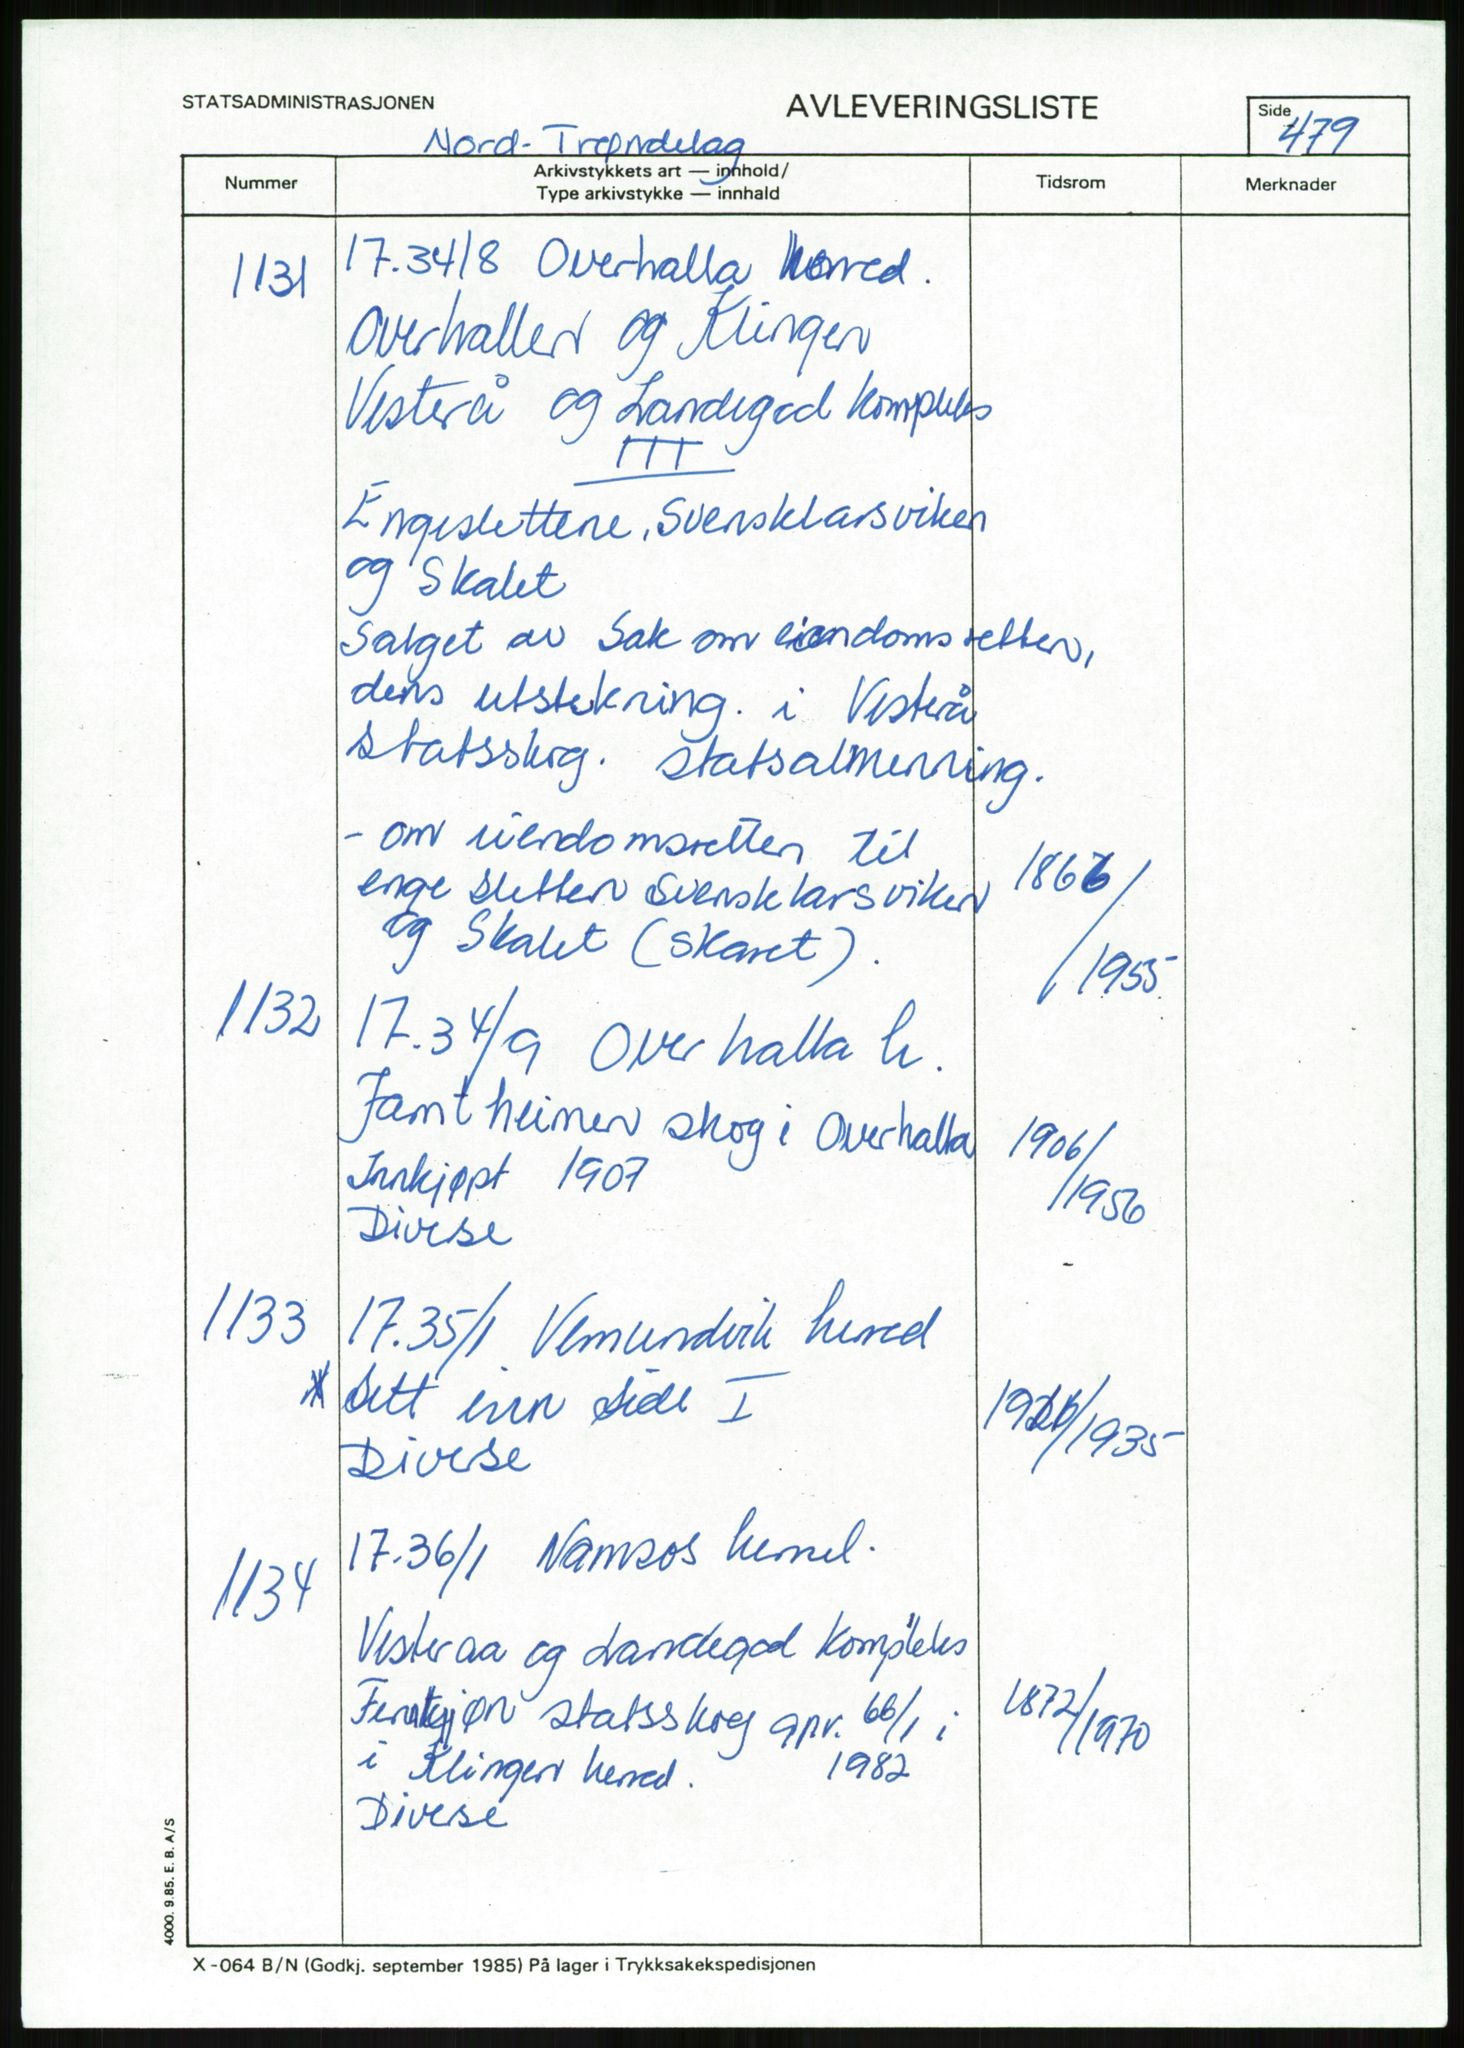 STATSADMINISTRASJONEN
AVLEVERINGSLISTE
Side 479
Nord-Trøndelag
Nummer
Arkivstykkets art — innhold/
Type arkivstykke — innhald
Tidsrom
Merknader
1131
17.34/8 Overhalla herred.
Overhallen og Klingen
Vesterå og Landegod kompleks
III
Engeslettene, Svensklarsviken
og Skalet
Salget av Sak om eiendomsretten,
dens utstekning. i Vesterå
statsskog. statsalmenning.
- om eiendomsretten til
enge sletten Svensklarsviken
og Skalet (skaret).
1866/
/1955
1132
17.34/9 Overhalla h.
Jamtheimen skog i Overhalla
Innkjøpt 1907
Diverse
1906/
/1956
1133
17.35/1 Vemundvik herred
* Sett inn side I
Diverse
/1935
1134
17.36/1 Namsos herred.
Vesteraa og Landegod kompleks
statsskog gnr. 66/1 i
i Klingen herred. 1982
Diverse
1872/
/1970
4000. 9.85. E. B. A/S
X-064 B/N (Godkj. september 1985) På lager i Trykksakekspedisjonen